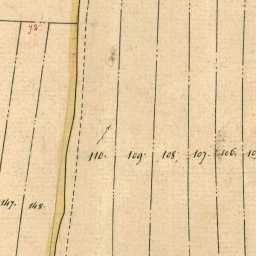 110. 109. 108. 107. 106.
147. 148.